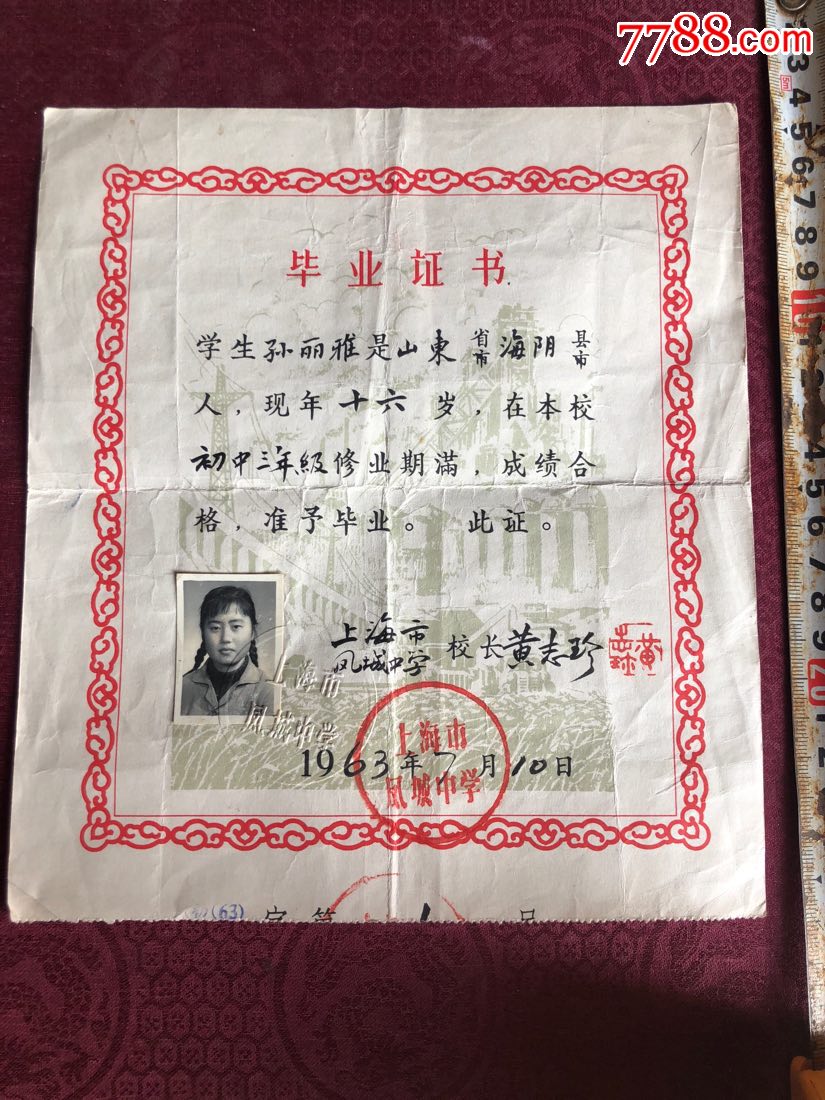 7788.com
毕业证书
学生孙丽雅是山東省市海阴县市
人，现年十六岁，在本校
初中三年級修业期滿，成绩合
格，准予毕业。 此证。
上海市
凤城中学 校长黄志珍
上海市
凤城中学
1963年7月10日
上海市
凤城中学
(63) 字第 1 号